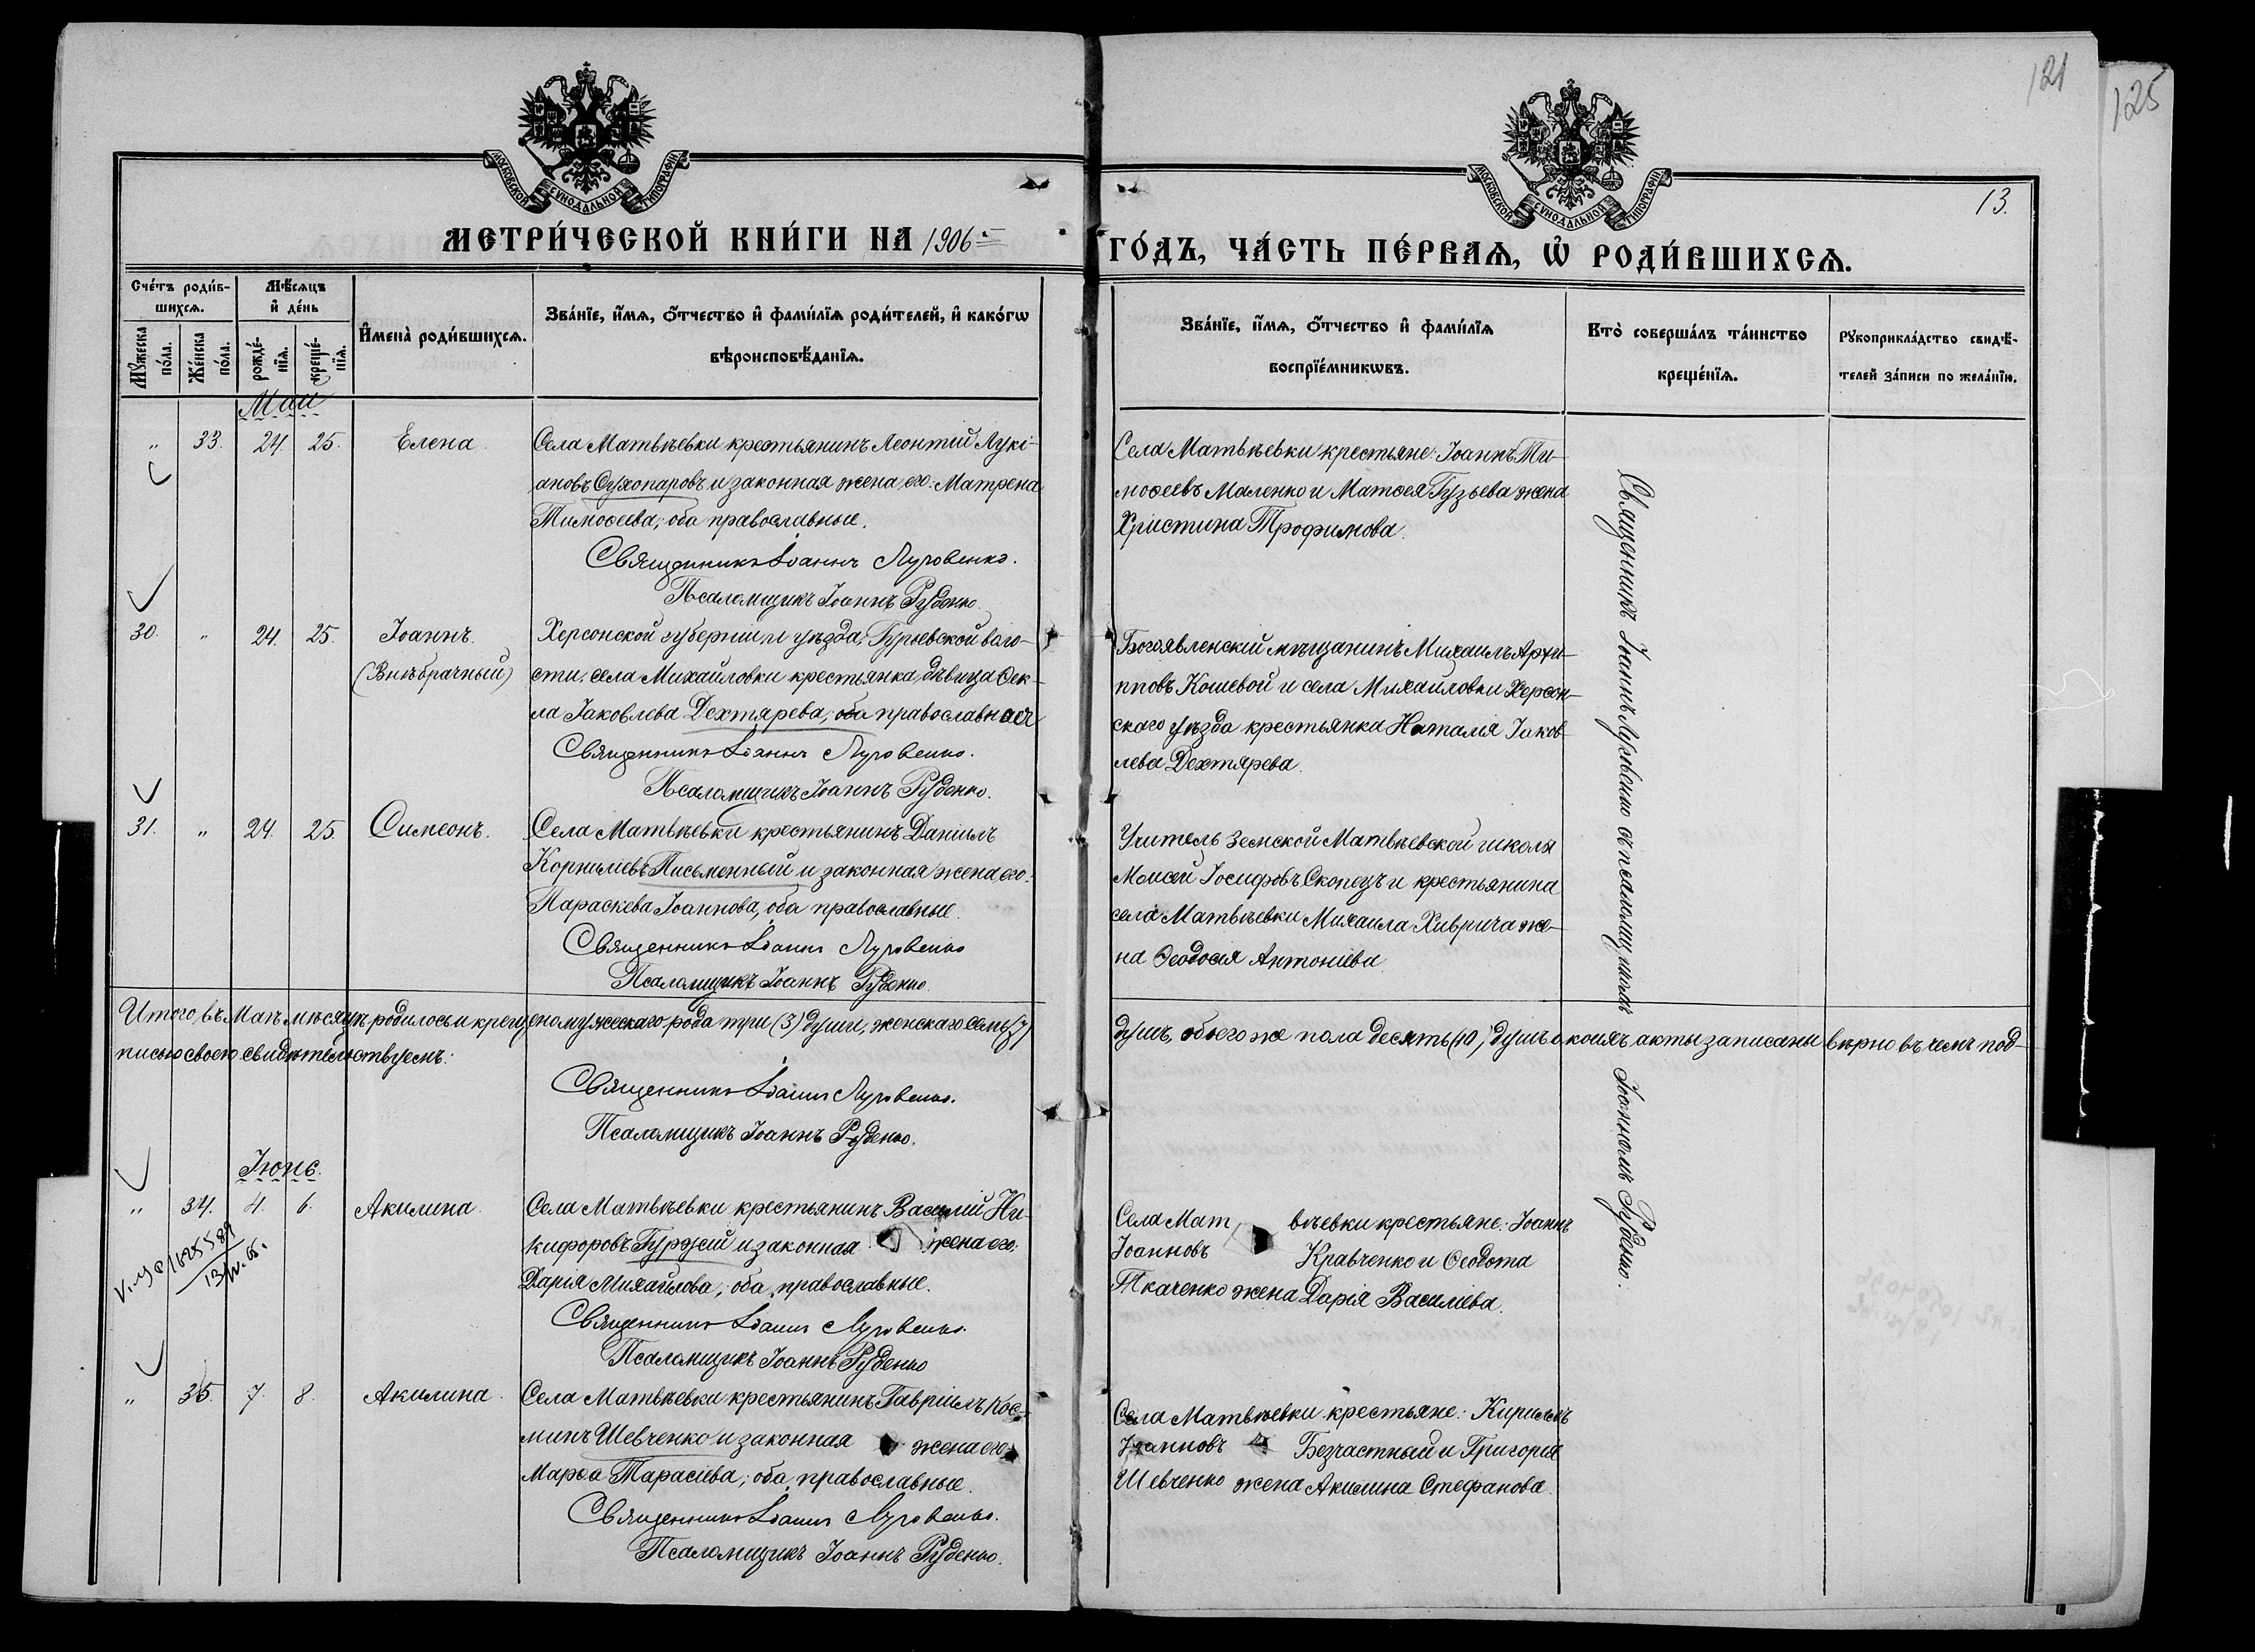 121
125
13.
МОСКОВСКОЙ СѴНОДАЛЬНОЙ ТИПОГРАФІИ
МОСКОВСКОЙ СѴНОДАЛЬНОЙ ТИПОГРАФІИ
МЕТРИ́ЧЕСКОЙ КНИ́ГИ НА 1906
ГО́ДЪ, ЧА́СТЬ ПЕ́РВАѦ, Ѡ҆ РОДИ́ВШИХСѦ.
Сче́тъ роди́в-
шихсѧ.
Мѣ́сяцъ
и҆ де́нь
Мꙋ́жеска
по́ла.
Же́нска
по́ла.
рожде́-
нїѧ.
креще́-
нїѧ.
И҆мена̀ роди́вшихсѧ.
Зва́нїе, и҆́мѧ, ѻ҆́тчество и҆ фами́лїѧ роди́телей, и҆ како́гѡ
вѣроисповѣ́данїѧ.
Зва́нїе, и҆́мѧ, ѻ҆́тчество и҆ фами́лїѧ
воспрїе́мникѡвъ.
Кто̀ соверша́лъ та́инство
креще́нїѧ.
Рꙋкоприкла́дство свидѣ́-
телей за́писи по жела́нїю.
Маи
„ 33. 24. 25. Елена.
Села Матвѣевки крестьянинъ Леонтій Лукі-
ановъ Сухопаровъ и законная жена его: Матрена
Тимоѳеева; оба православные.
Священникъ Іоаннъ Луговенко.
Псаломщикъ Іоаннъ Руденко.
Села Матвѣевки крестьяне: Іоаннъ Ти-
моѳеевъ Маленко и Матѳея Гузьева жена
Христина Трофимова.
30. „ 24. 25. Іоаннъ.
(Внѣбрачный)
Херсонской губерніи и уѣзда, Гурьевской воло-
сти, села Михайловки крестьянка, дѣвица Ѳек-
ла Іаковлева Дехтярева, оба православная
Священникъ Іоаннъ Луговенко.
Псаломщикъ Іоаннъ Руденко.
Богоявленскій мѣщанинъ Михаилъ Архи-
пповъ Кошевой и села Михайловки Херсон-
скаго уѣзда крестьянка Наталія Іаков-
лева Дехтярева.
31. „ 24. 25. Симеонъ.
Села Матвѣевки крестьянинъ Даніилъ
Корниліевъ Письменный и законная жена его:
Параскева Іоаннова, оба православные.
Священникъ Іоаннъ Луговенко
Псаломщикъ Іоаннъ Руденко.
Учитель Земской Матвѣевской школы
Моисей Іосифовъ Скопецъ и крестьянина
села Матвѣевки Михаила Хиврича же-
на Ѳеодосія Антоніева.
Священникъ Іоаннъ Луговенко съ псаломщикомъ Іоанномъ Руденко.
Итого, въ Маѣ мѣсяцѣ родилось и крещено мужескаго рода три (3) души, женскаго семь (7)
душъ, обоего же пола десять (10) душъ о коихъ акты записаны вѣрно въ чемъ под-
писью своею свидѣтельствуемъ:
Священникъ Іоаннъ Луговенко.
Псаломщикъ Іоаннъ Руденко.
Іюнь.
„ 34. 4. 6. Акилина.
Села Матвѣевки крестьянинъ Василій Ни-
кифоровъ Гуржій и законная жена его:
Дарія Михайлова; оба православные.
Священникъ Іоаннъ Луговенко.
Псаломщикъ Іоаннъ Руденко
Села Матвѣевки крестьяне: Іоаннъ
Іоанновъ Кравченко и Ѳеодота
Ткаченко жена Дарія Василіева.
„ 35. 7. 8. Акилина.
Села Матвѣевки крестьянинъ Гавріилъ Кос-
минъ Шевченко и законная жена его:
Марѳа Тарасіева; оба православные.
Священникъ Іоаннъ Луговенко.
Псаломщикъ Іоаннъ Руденко.
Села Матвѣевки крестьяне: Кириллъ
Іоанновъ Безчастный и Григорія
Шевченко жена Акилина Стефанова.